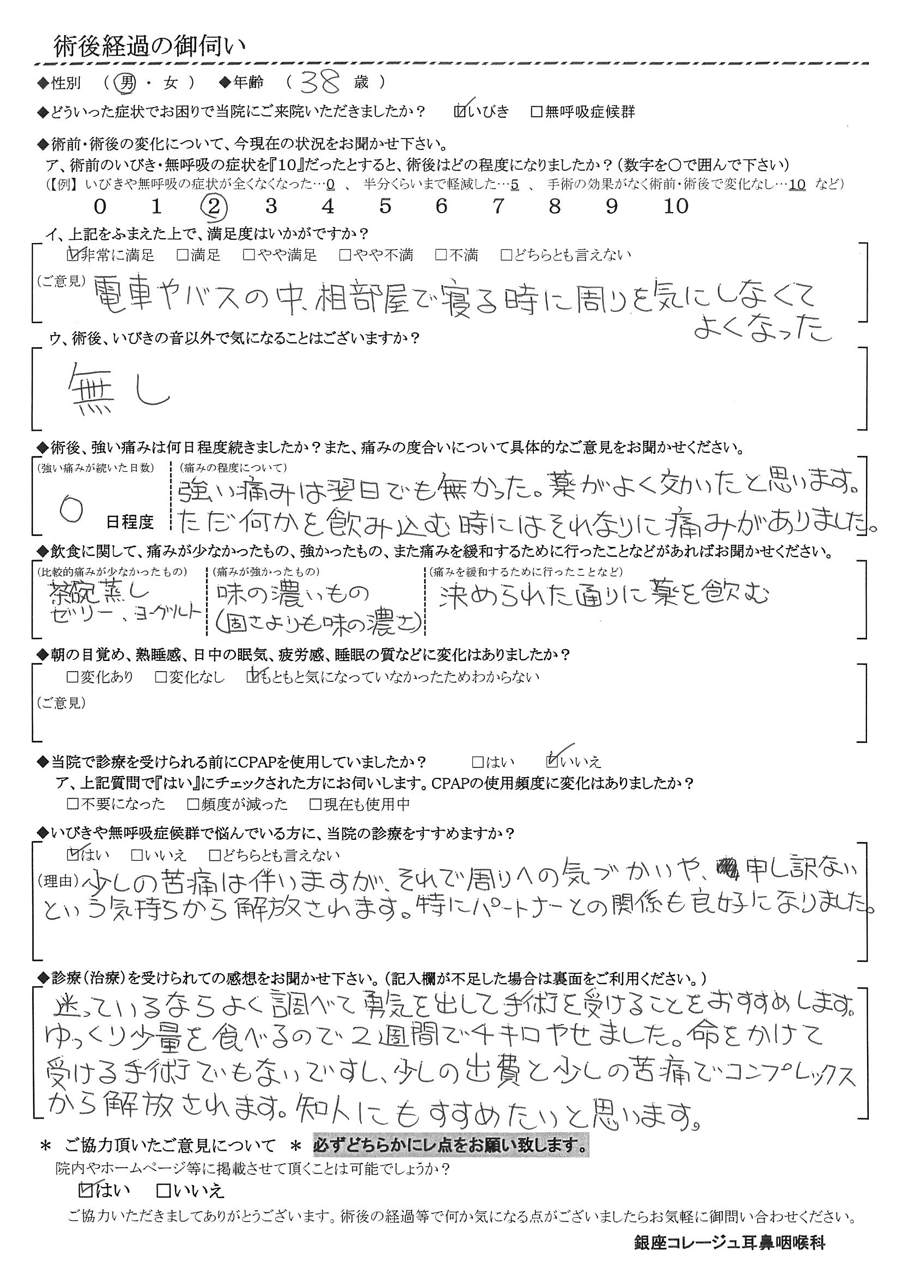 術後経過の御伺い
◆性別 （ 男 ・ 女 ） ◆年齢 （ 38 歳 ）
◆どういった症状でお困りで当院にご来院いただきましたか？ ☑いびき □無呼吸症候群
◆術前・術後の変化について、今現在の状況をお聞かせ下さい。
ア、術前のいびき・無呼吸の症状を『10』だったとすると、術後はどの程度になりましたか？（数字を〇で囲んで下さい）
（【例】 いびきや無呼吸の症状が全くなくなった…0 、 半分くらいまで軽減した…5 、 手術の効果がなく術前・術後で変化なし…10 など）
0 1 ② 3 4 5 6 7 8 9 10
イ、上記をふまえた上で、満足度はいかがですか？
☑非常に満足 □満足 □やや満足 □やや不満 □不満 □どちらとも言えない
（ご意見） 電車やバスの中、相部屋で寝る時に周りを気にしなくて
よくなった
ウ、術後、いびきの音以外で気になることはございますか？
無し
◆術後、強い痛みは何日程度続きましたか？また、痛みの度合いについて具体的なご意見をお聞かせください。
（強い痛みが続いた日数） （痛みの程度について）
強い痛みは翌日でも無かった。薬がよく効いたと思います。
0 日程度 ただ何かを飲み込む時にはそれなりに痛みがありました。
◆飲食に関して、痛みが少なかったもの、強かったもの、また痛みを緩和するために行ったことなどがあればお聞かせください。
（比較的痛みが少なかったもの） （痛みが強かったもの） （痛みを緩和するために行ったことなど）
茶碗蒸し 味の濃いもの 決められた通りに薬を飲む
ゼリー、ヨーグルト （固さよりも味の濃さ）
◆朝の目覚め、熟睡感、日中の眠気、疲労感、睡眠の質などに変化はありましたか？
□変化あり □変化なし ☑もともと気になっていなかったためわからない
（ご意見）
◆当院で診療を受けられる前にCPAPを使用していましたか？ □はい ☑いいえ
ア、上記質問で『はい』にチェックされた方にお伺いします。CPAPの使用頻度に変化はありましたか？
□不要になった □頻度が減った □現在も使用中
◆いびきや無呼吸症候群で悩んでいる方に、当院の診療をすすめますか？
☑はい □いいえ □どちらとも言えない
（理由） 少しの苦痛は伴いますが、それで周りへの気づかいや、申し訳ない
という気持ちから解放されます。特にパートナーとの関係も良好になりました。
◆診療（治療）を受けられての感想をお聞かせ下さい。（記入欄が不足した場合は裏面をご利用ください。）
迷っているならよく調べて勇気を出して手術を受けることをおすすめします。
ゆっくり少量を食べるので2週間で4キロやせました。命をかけて
受ける手術でもないですし、少しの出費と少しの苦痛でコンプレックス
から解放されます。知人にもすすめたいと思います。
＊ ご協力頂いたご意見について ＊ 必ずどちらかにレ点をお願い致します。
院内やホームページ等に掲載させて頂くことは可能でしょうか？
☑はい □いいえ
ご協力いただきましてありがとうございます。術後の経過等で何か気になる点がございましたらお気軽に御問い合わせください。
銀座コレージュ耳鼻咽喉科